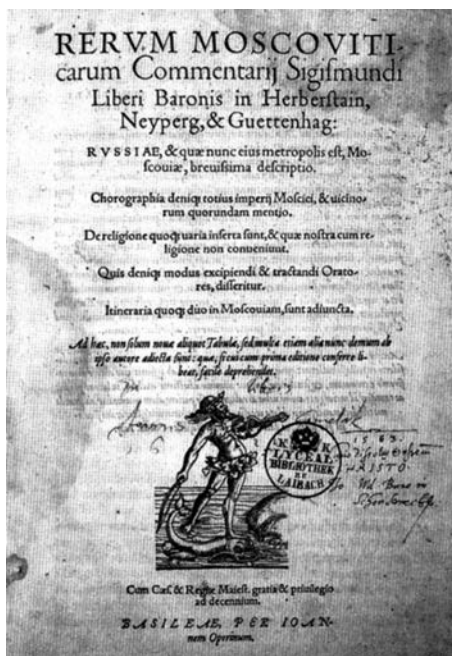 RERVM MOSCOVITI-
carum Commentarij Sigiſmundi
Liberi Baronis in Herberſtain,
Neyperg, & Guettenhag:
RVSSIAE, & quæ nunc eius metropolis eſt, Mo-
ſcouiæ, breuiſsima deſcriptio.
Chorographia deniqꝫ totius imperij Moſcici, & uicino-
rum quorundam mentio.
De religione quoqꝫ uaria inſerta ſunt, & quæ noſtra cum re-
ligione non conueniunt.
Quis deniqꝫ modus excipiendi & tractandi Orato-
res, diſſeritur.
Itineraria quoqꝫ duo in Moſcouiam, ſunt adiuncta.
Ad hæc, non ſolum nouæ aliquot Tabulæ, ſed multa etiam alia nunc demum ab
ipſo autore adiecta ſunt: quæ, ſi cui cum prima editione conferre li-
beat, facile deprehendet.
K K
LYCEAL
BIBLIOTHEK
LAIBACH
Cum Cæſ. & Regiæ Maieſt. gratia & priuilegio
ad decennium.
BASILEAE, PER IOAN-
nem Oporinum.